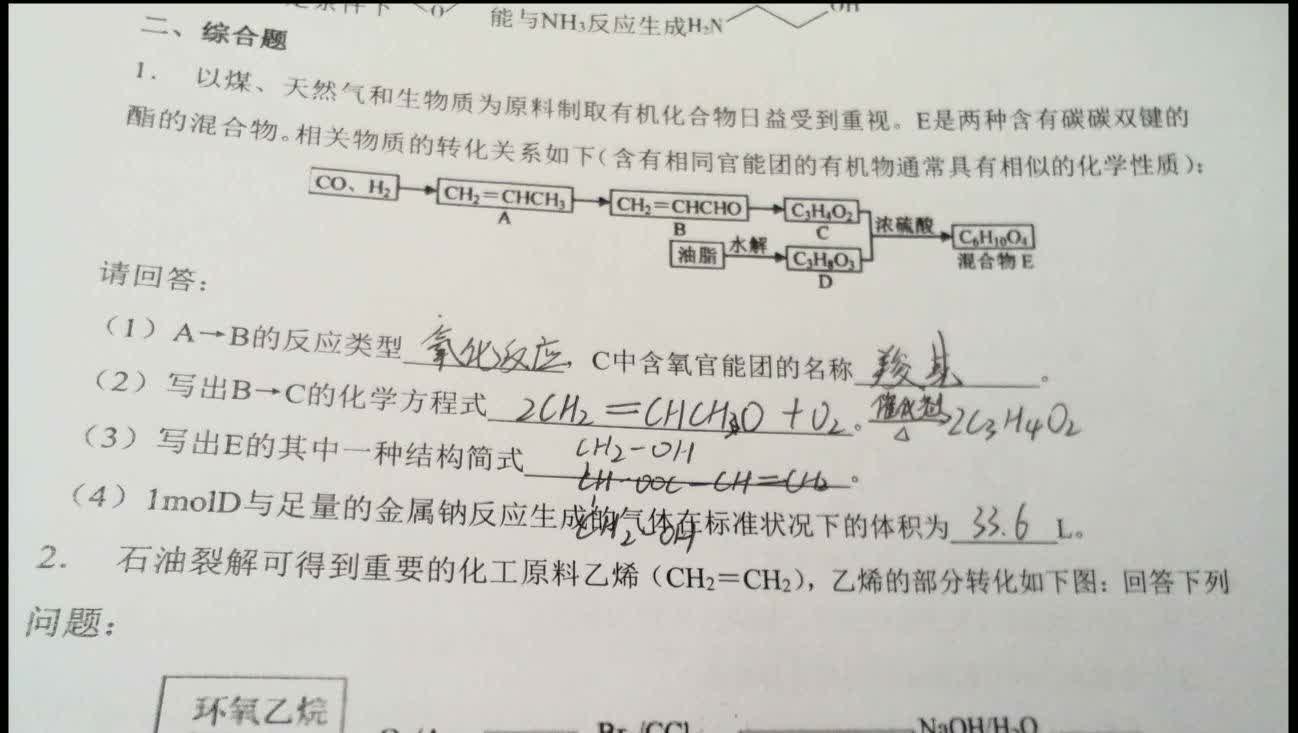 能与NH₃反应生成H₂N OH
二、综合题
1. 以煤、天然气和生物质为原料制取有机化合物日益受到重视。E是两种含有碳碳双键的
酯的混合物。相关物质的转化关系如下(含有相同官能团的有机物通常具有相似的化学性质):
CO、H₂ CH₂=CHCH₃ CH₂=CHCHO C₃H₄O₂ 浓硫酸 C₆H₁₀O₄
A B C 混合物E
油脂 水解 C₃H₈O₃
D
请回答:
(1) A→B的反应类型 氧化反应, C中含氧官能团的名称 羧基 。
(2) 写出B→C的化学方程式 2CH₂=CHCHO+O₂ 催化剂 △ 2C₃H₄O₂ 。
(3) 写出E的其中一种结构简式 CH₂-OH
CH-OOC-CH=CH₂ 。
CH₂-OH
(4) 1molD与足量的金属钠反应生成的气体在标准状况下的体积为 33.6 L。
2. 石油裂解可得到重要的化工原料乙烯(CH₂=CH₂), 乙烯的部分转化如下图: 回答下列
问题:
环氧乙烷
NaOH/H₂O